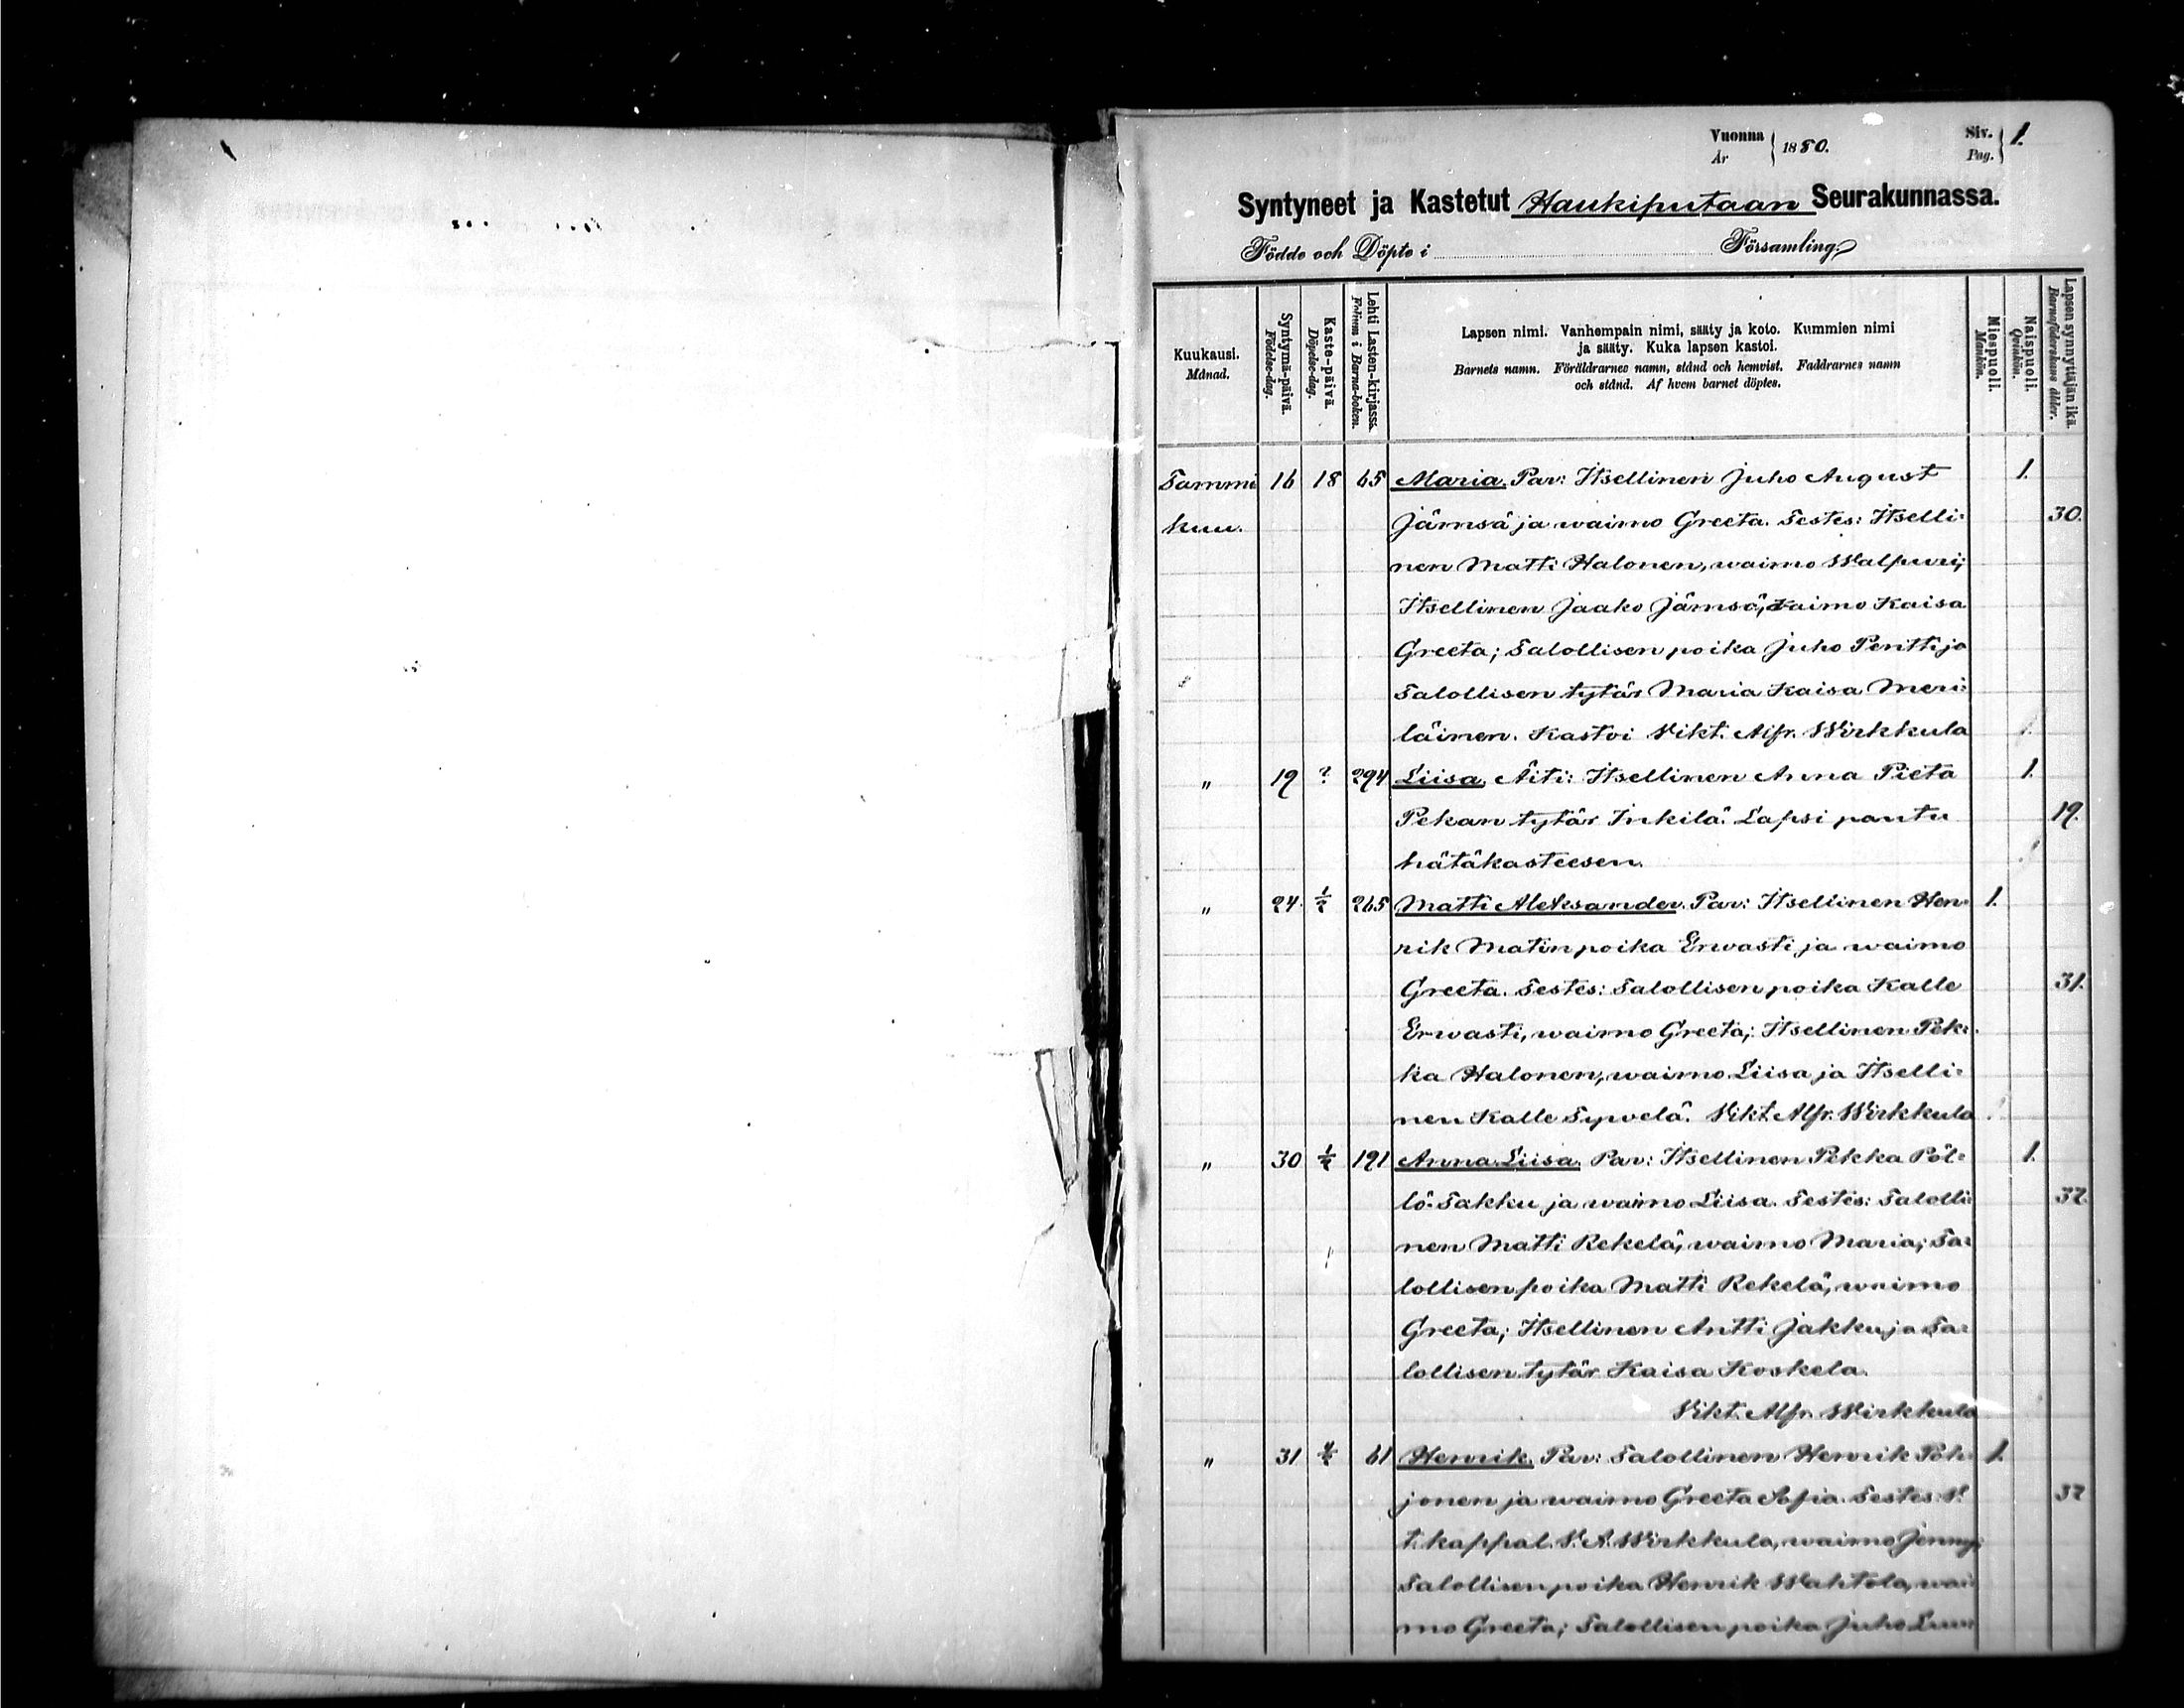 Vuonna 1880. Siv. 1.
År Pag.
Syntyneet ja Kastetut Haukiputaan Seurakunnassa.
Födde och Döpte i Församling.
Kuukausi.
Månad.
Syntymä-päivä.
Födelse-dag.
Kaste-päivä.
Döpelse-dag.
Lehti Lasten-kirjassa.
Folium i Barna-boken.
Lapsen nimi. Vanhempain nimi, sääty ja koto. Kummien nimi
ja sääty. Kuka lapsen kastoi.
Barnets namn. Föräldrarnes namn, stånd och hemvist. Faddrarnes namn
och stånd. Af hvem barnet döptes.
Miespuoli.
Mankön.
Naispuoli.
Qvinkön.
Lapsen synnyttäjän ikä.
Barnaföderskans ålder.
Tammi 16 18 65 Maria. Par: Itsellinen Juho August 1.
kuu. Jämsä ja waimo Greeta. Testes: Itselli= 30.
nen Matti Halonen, waimo Walpuri;
Itsellinen Jaako Jämsä, waimo Kaisa
Greeta; Talollisen poika Juho Pentti ja
Talollisen tytär Maria Kaisa Meri=
läinen. Kastoi Vikt. Alfr. Wirkkula
" 19 ? 294 Liisa. Äiti: Itsellinen Anna Pieta 1.
Pekan tytär Inkilä. Lapsi pantu 19.
hätäkasteesen.
" 24 1/2 265 Matti Aleksander. Par: Itsellinen Hen= 1.
rik Matinpoika Erwasti ja waimo
Greeta. Testes: Talollisen poika Kalle 31.
Erwasti, waimo Greeta; Itsellinen Pek=
ka Halonen, waimo Liisa ja Itselli=
nen Kalle Sywelä. Vikt. Alfr. Wirkkula
" 30 1/2 191 Anna Liisa. Par: Itsellinen Pekka Pöl= 1.
lö-Sakku ja waimo Liisa. Testes: Talolli= 37.
nen Matti Rekelä, waimo Maria; Ta=
lollisen poika Matti Rekelä, waimo
Greeta; Itsellinen Antti Jakku ja Ta=
lollisen tytär Kaisa Koskela.
Vikt. Alfr. Wirkkula
" 31 4/2 61 Henrik. Par: Talollinen Henrik Poh= 1.
jonen ja waimo Greeta Sofia. Testes: V. 37
t. kappal. V. A. Wirkkula, waimo Jenny;
Talollisen poika Henrik Wahtola, wai=
mo Greeta; Talollisen poika Juho